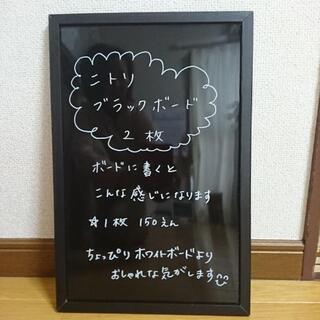 ニトリ
ブラックボード
2枚
ボードに書くと
こんな感じになります
☆1枚 150えん
ちょっぴりホワイトボードより
おしゃれな気がします